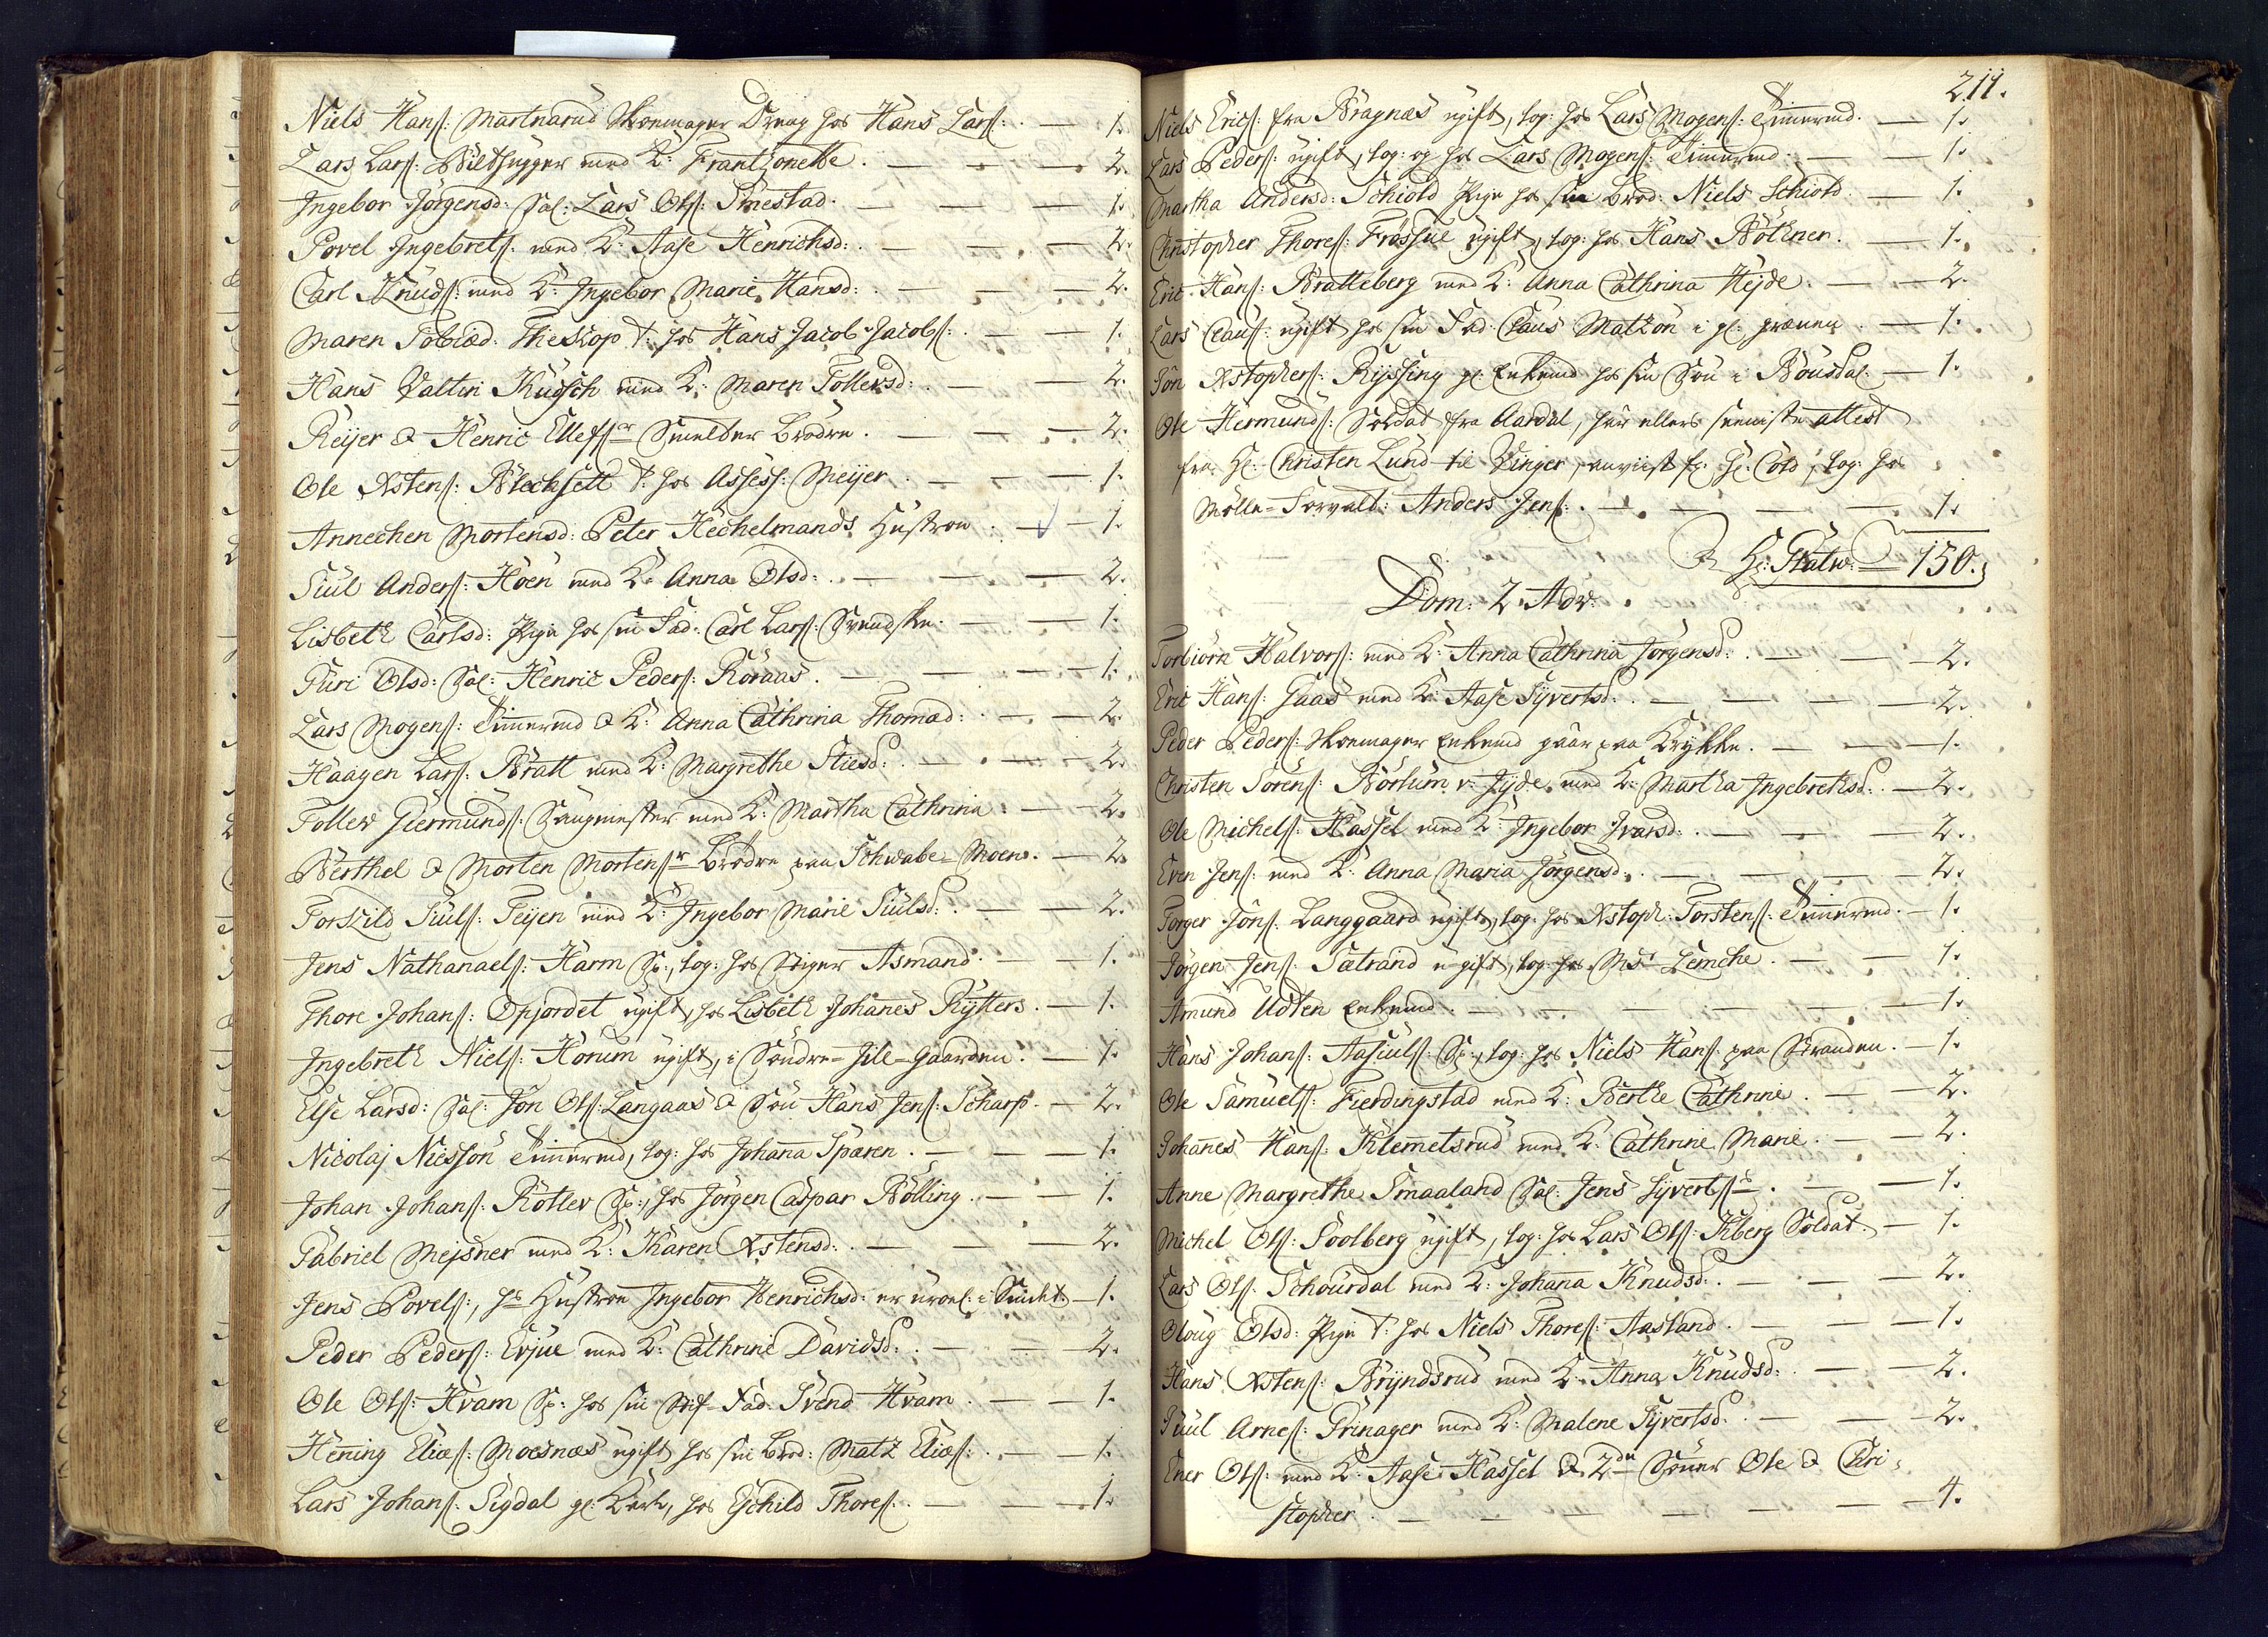 Niels Hans: Martnarud Skoemager Dreng hos Hans Lars: . — 1.
Lars Lars: Biltsugger med K: Frantzonette . — — 2.
Ingebor Jörgensd: Sal: Lars Ols: Smestad . — — — 1.
Povel Ingebrets: med K: Aase Henrichsd: . — — — 2.
Carl Knuds: med K: Ingebor Marie Hansd: . — — — 2.
Maren Tobiæd: Thieskop t: hos Hans Jacob Jacobs: . — — 1.
Hans Valtin Kugsch med K: Maren Tollevsd: . — — 2.
Reijer & Henric Ellefs: Smelter Brödre . — — — 2.
Ole Xstens: Blechsett t: hos Assess: Meijer . — — — 1.
Annechen Mortensd: Peter Hechelmands Hustroe . — — 1.
Siul Anders: Hoen med K: Anna Olsd: . — — — 2.
Lisbeth Carlsd: Pige hos sin Fad: Carl Lars: Svendske . — — 1.
Guri Olsd: Sal: Henric Peders: Röraas . — — — 1.
Lars Mogens: Timermd & K: Anna Cathrina Thomæd: . — — 2.
Haagen Lars: Bratt med K: Margrethe Stiesd: . — — 2.
Tollev Giermunds: Saugmester med K: Martha Cathrina . — — 2.
Berthel & Morten Mortens: Brödre paa Schwabe-Moen . — 2.
Torkild Siuls: Teijen med K: Ingebor Marie Siulsd: . — — 2.
Jens Nathanaels: Harm Sp:, log: hos Stiger Asmand . — — 1.
Thore Johans: Opjordet ugift, hos Lisbeth Johanes Rytters . — 1.
Ingebreth Niels: Horum ugift, i Söndre-Jile-Gaarden . — 1.
Else Larsd: Sal: Jon Ols: Langaas & Sön Hans Jens: Scharp . — 2.
Nicolaj Niesson Timermd, log: hos Johana Sparen . — — 1.
Johan Johans: Rotlev Sp:, hos Jörgen Caspar Bölling . — — 1.
Gabriel Mejsner med K: Karen Xstensd: . — — — 2.
Jens Povels:, hs Hustroe Ingebor Henrichsd: er uroel: i Sindet — 1.
Peder Peders: Evjue med K: Cathrine Davidsd: . — — 2.
Ole Ols: Hvam Sp: hos sin Stif-Fad: Svend Hvam . — — 1.
Hening Eliæs: Moesnæs ugift hos sin Brod: Matz Eliæs: . — 1.
Lars Johans: Sigdal gl: Karl, hos Eschild Thores: . — — 1.
211.
Niels Erics: fra Bragnæs ugift, log: hos Lars Mogens: Timermd . — 1.
Lars Peders: ugift, log: og hos Lars Mogens: Timermd . — — 1.
Martha Andersd: Schiold Pige hos sin Brod: Niels Schiold . — 1.
Christopher Thores: Frössue ugift, log: hos Hans Bölkner . — 1.
Eric Hans: Bratteberg med K: Anna Cathrina Heyde . — — 2.
Lars Claus: ugift hos sin Fad: Claus Matzon i gl: Grænen . — 1.
Jon Xstophers: Ryssing gl: Enkemd hos sin Sön i Bousdal — 1.
Ole Hermunds: Soldat fra Aardal, har ellers seeniste attest
fra Hr: Christen Lund til Vinger, anviist fr: Hr: Cold, log: hos
Mölle-Forvalt: Anders Jens: . — — — 1.
Hr: Statw: — 150.
Dom: 2. Adv: .
Torbiörn Halvors: med K: Anna Cathrina Jörgensd: . — — 2.
Eric Hans: Gaas med K: Aase Syvertsd: . — — — 2.
Peder Peders: Skoemager Enkemd gaar paa Krykke . — — 1.
Christen Sörens: Börlum v: Jyde, med K: Martha Ingebrethsd: . — 2.
Ole Michels: Hassel med K: Ingebor Ivarsd: . — — — 2.
Even Jens: med K: Anna Maria Jörgensd: . — — — 2.
Torger Jons: Langgaard ugift, log: hos Xstoph: Torstens: Timermd . — 1.
Jörgen Jens: Sætrand u-gift, log hos Msr Lemche . — — 1.
Amund Udten Enkemd . — — — — 1.
Hans Johans: Aasiuls: Sp:, log: hos Niels Hans: paa Stranden . — 1.
Ole Samuels: Fierdingstad med K: Berthe Cathrine . — — 2.
Johanes Hans: Klemetsrud med K: Cathrine Marie . — — 2.
Anne Margrethe Smaaland Sal: Jens Syverts: . — — 1.
Michel Ols: Soolberg ugift, log: hos Lars Ols: Kberg Soldat . — 1.
Lars Ols: Schourdal med K: Johana Knudsd: . — — — 2.
Oloug Olsd: Pige t: hos Niels Thores: Aasland . — — — 1.
Hans Xstens: Bryndsrud med K: Anna Knudsd: . — — 2.
Siul Arnes: Grinager med K: Malene Syvertsd: . — — 2.
Ener Ols: med K: Aase Hassel & 2de Sönner Ole & Chri-
stopher . — — — — — 4.